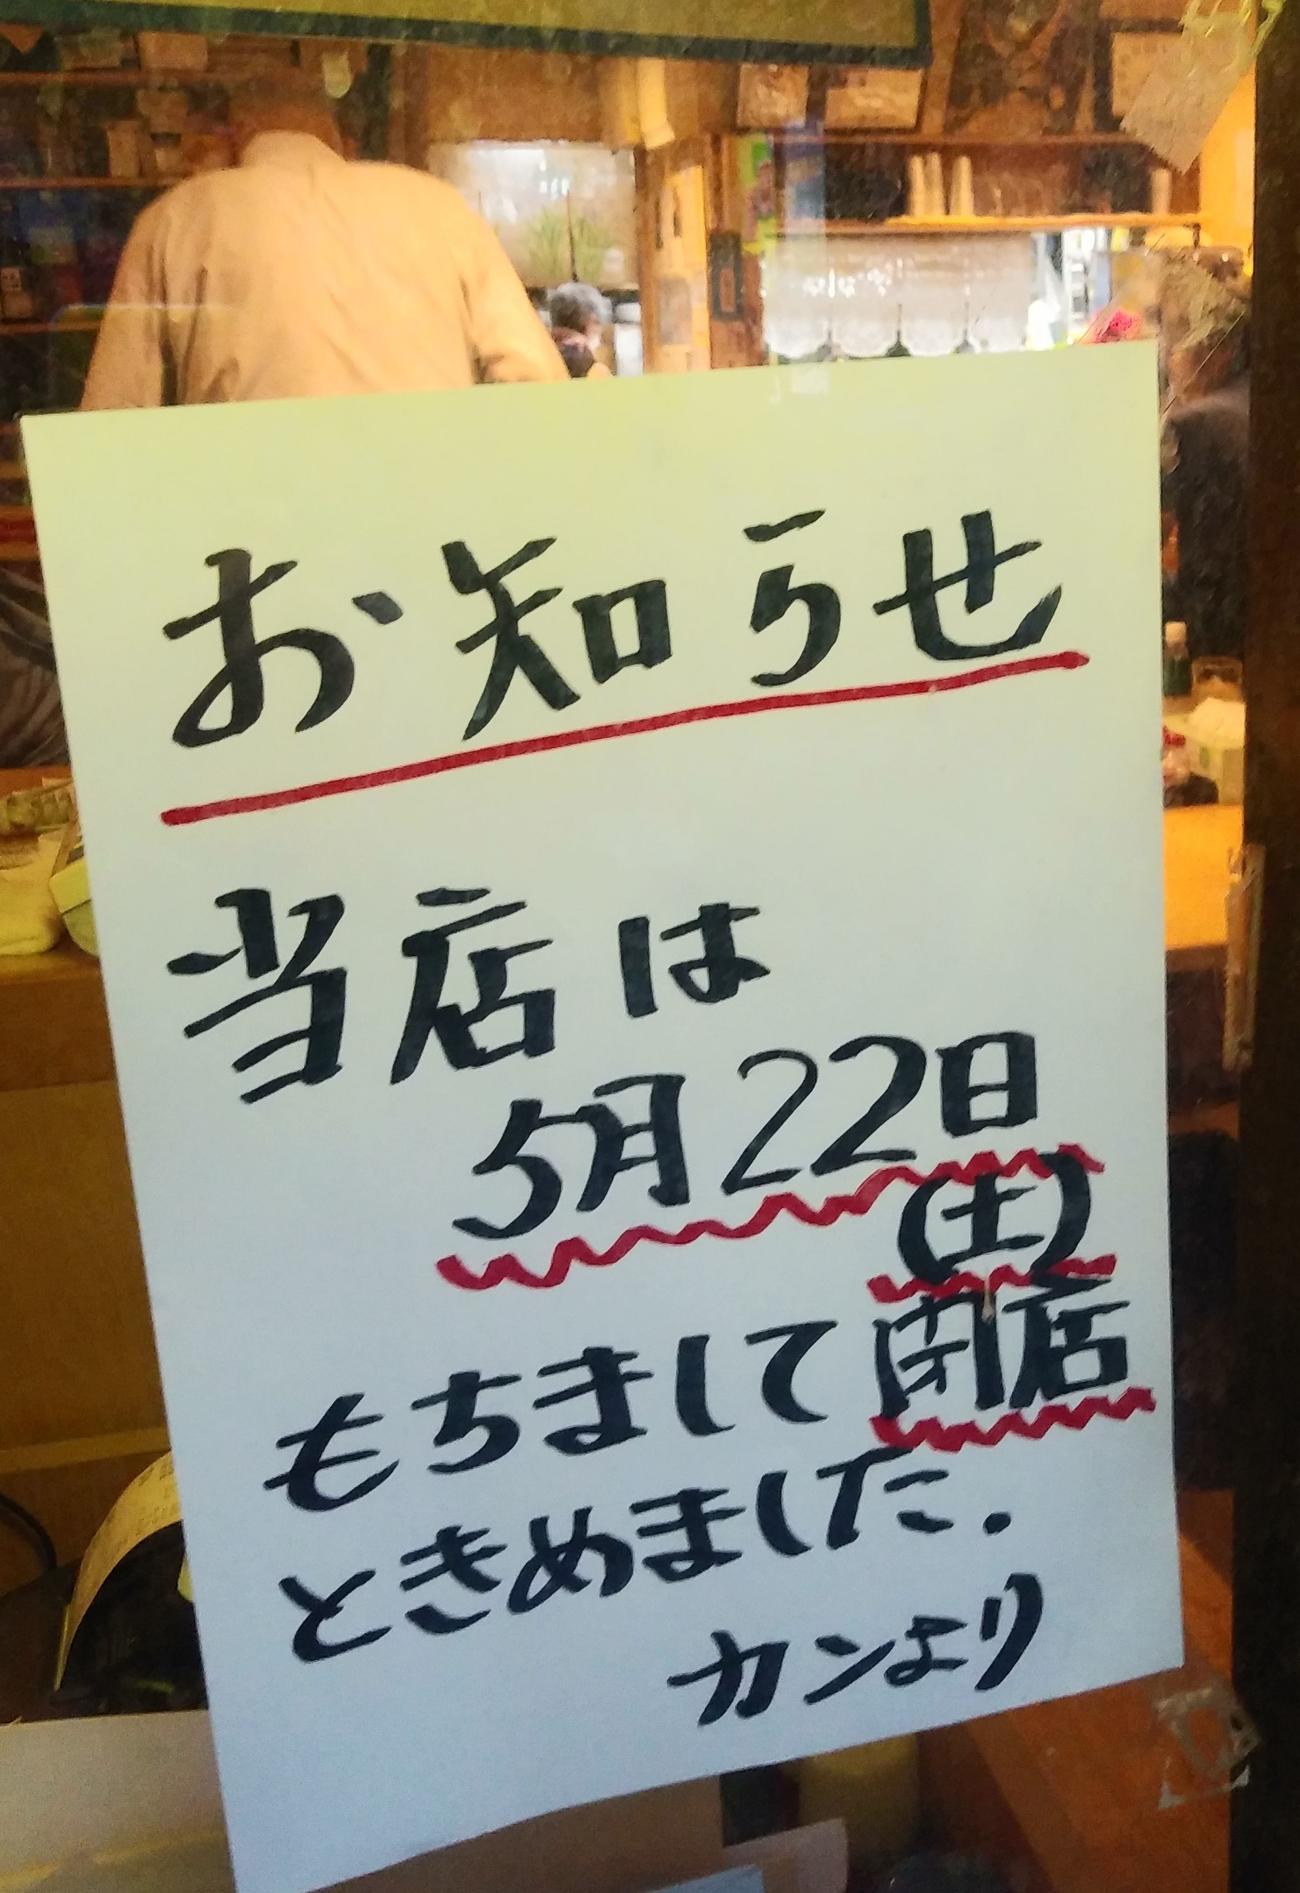 お知らせ
当店は
5月22日
(土)
もちまして閉店
ときめました.
カンより